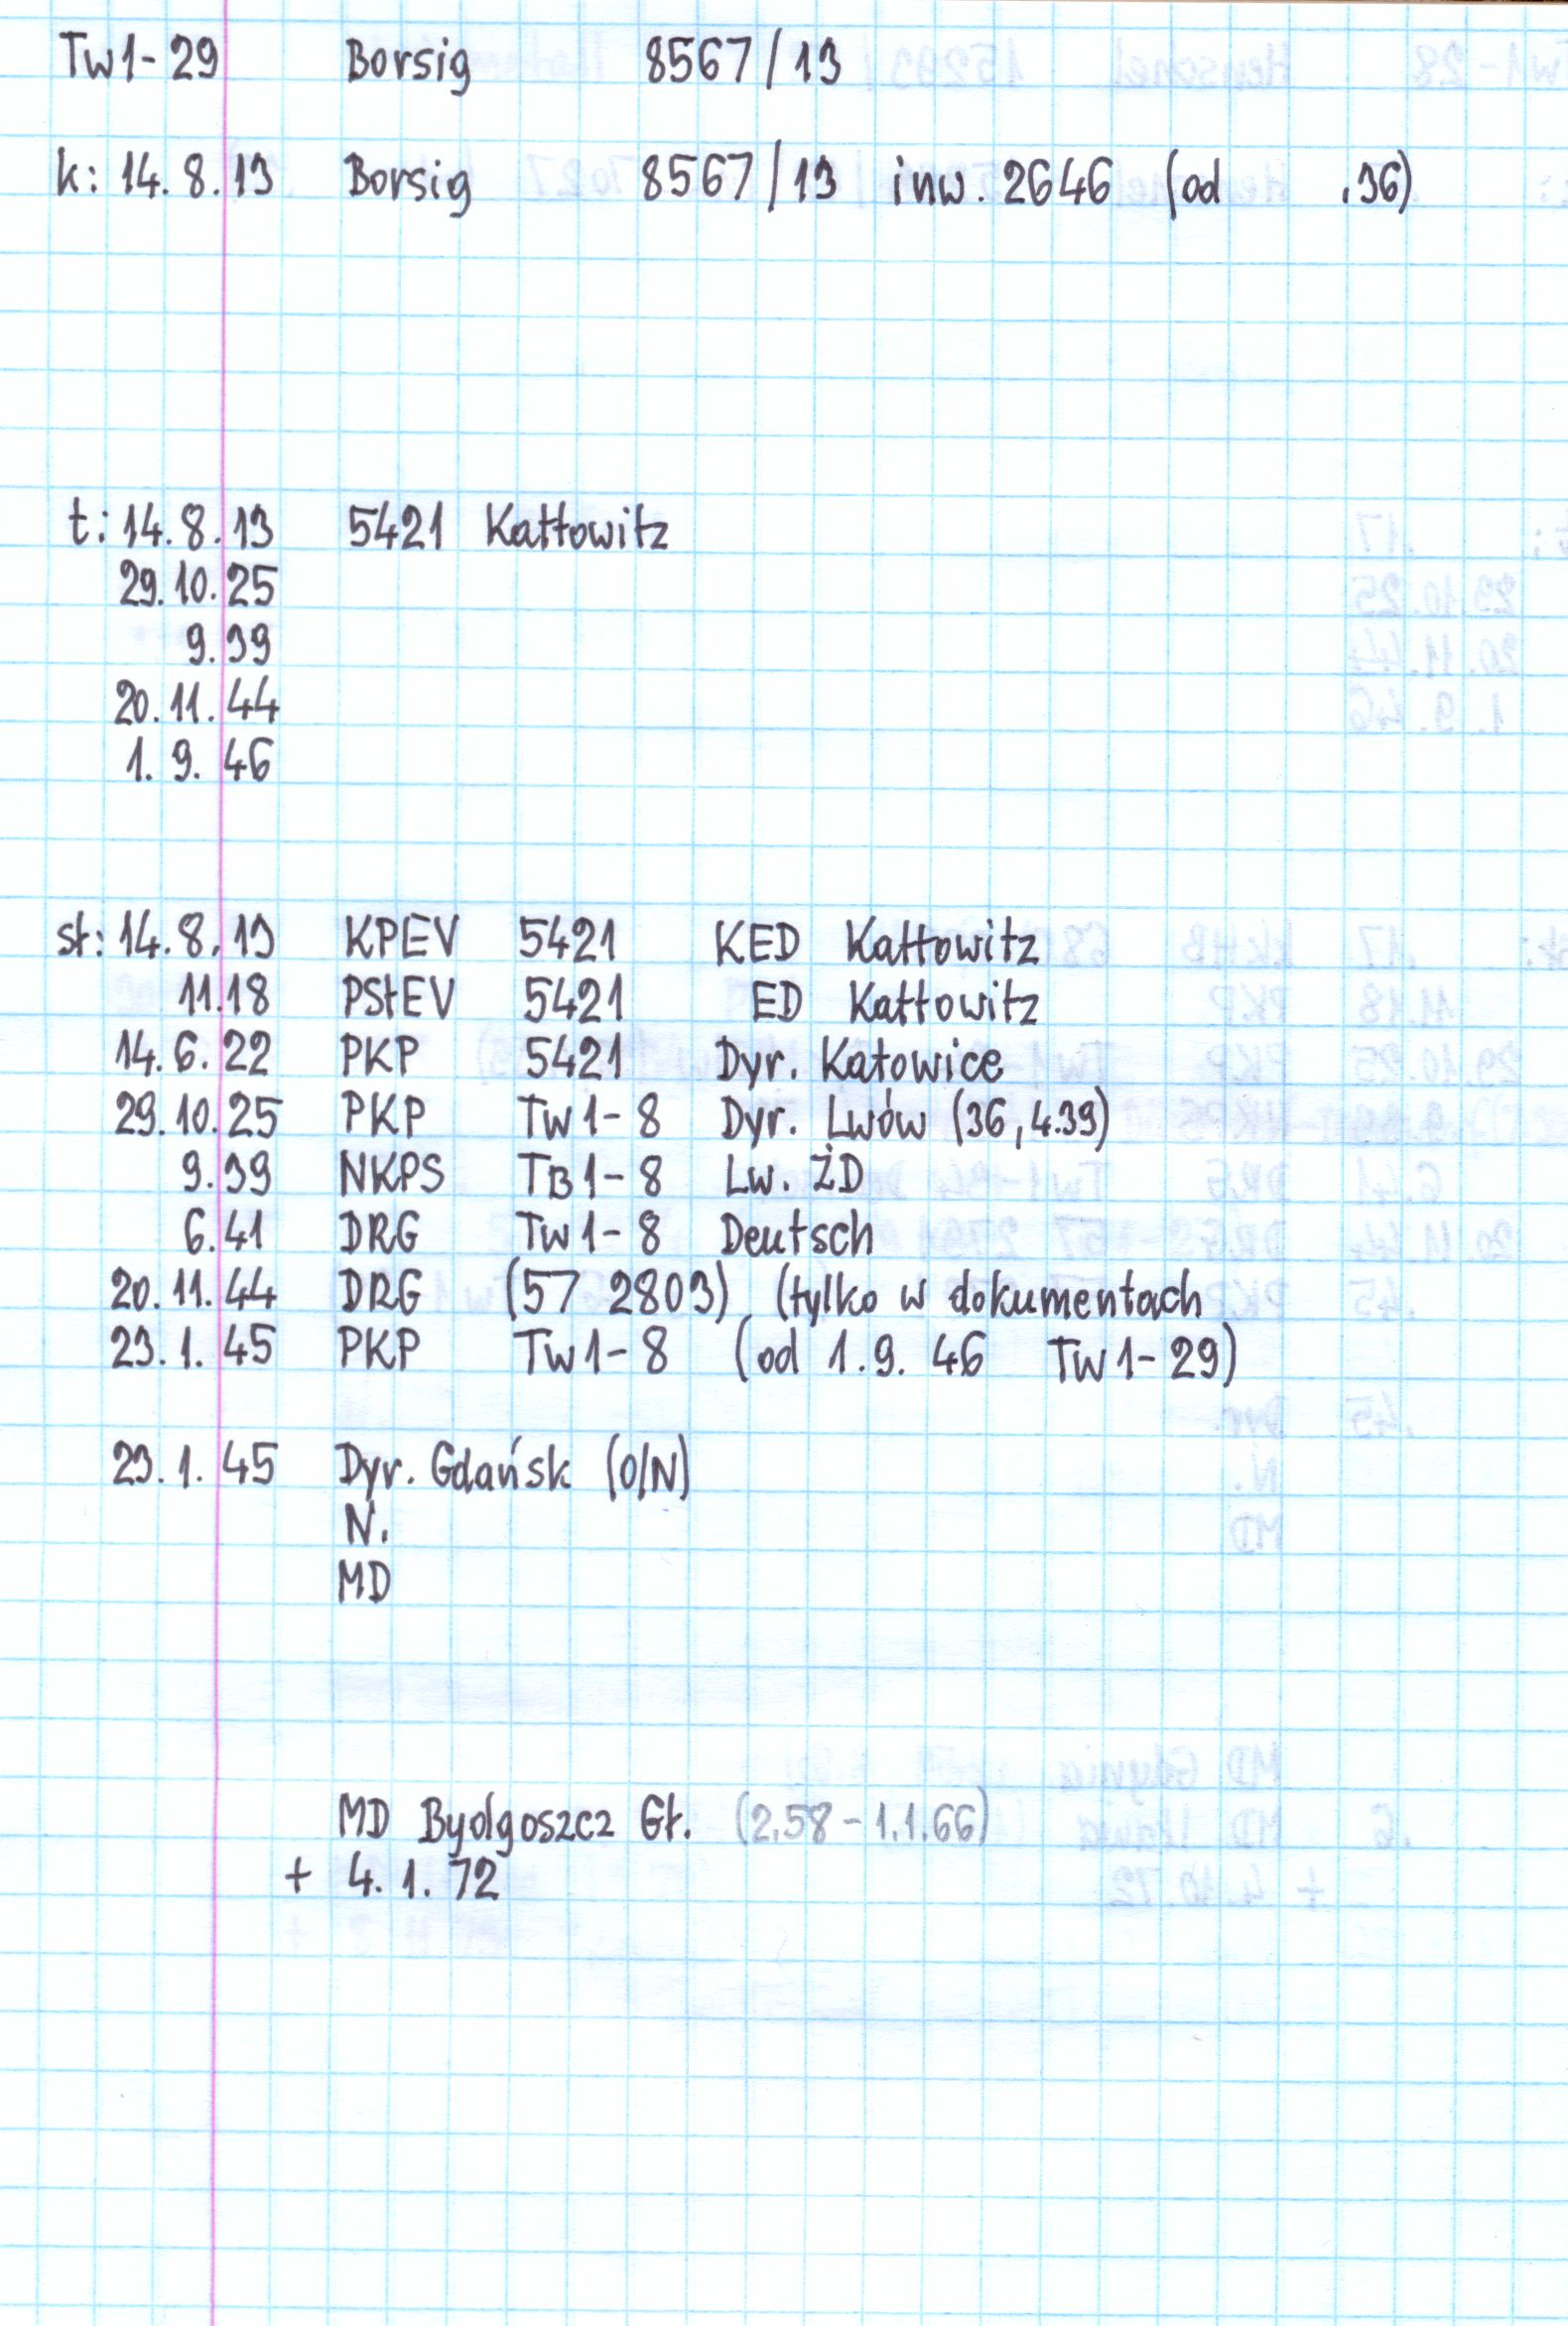 Tw1-29 Borsig 8567/13
k: 14.8.13 Borsig 8567/13 inw. 2646 (od .36)
t: 14.8.13 5421 Kattowitz
29.10.25
9.39
20.11.44
1.9.46
st: 14.8.13 KPEV 5421 KED Kattowitz
11.18 PStEV 5421 ED Kattowitz
14.6.22 PKP 5421 Dyr. Katowice
29.10.25 PKP Tw1-8 Dyr. Lwów (36, 4.39)
9.39 NKPS TB1-8 Lw. ŻD
6.41 DRG Tw1-8 Deutsch
20.11.44 DRG (57 2803) (tylko w dokumentach
23.1.45 PKP Tw1-8 (od 1.9.46 Tw1-29)
23.1.45 Dyr. Gdańsk (O/N)
N.
MD
MD Bydgoszcz Gł. (2.58-1.1.66)
+ 4.1.72